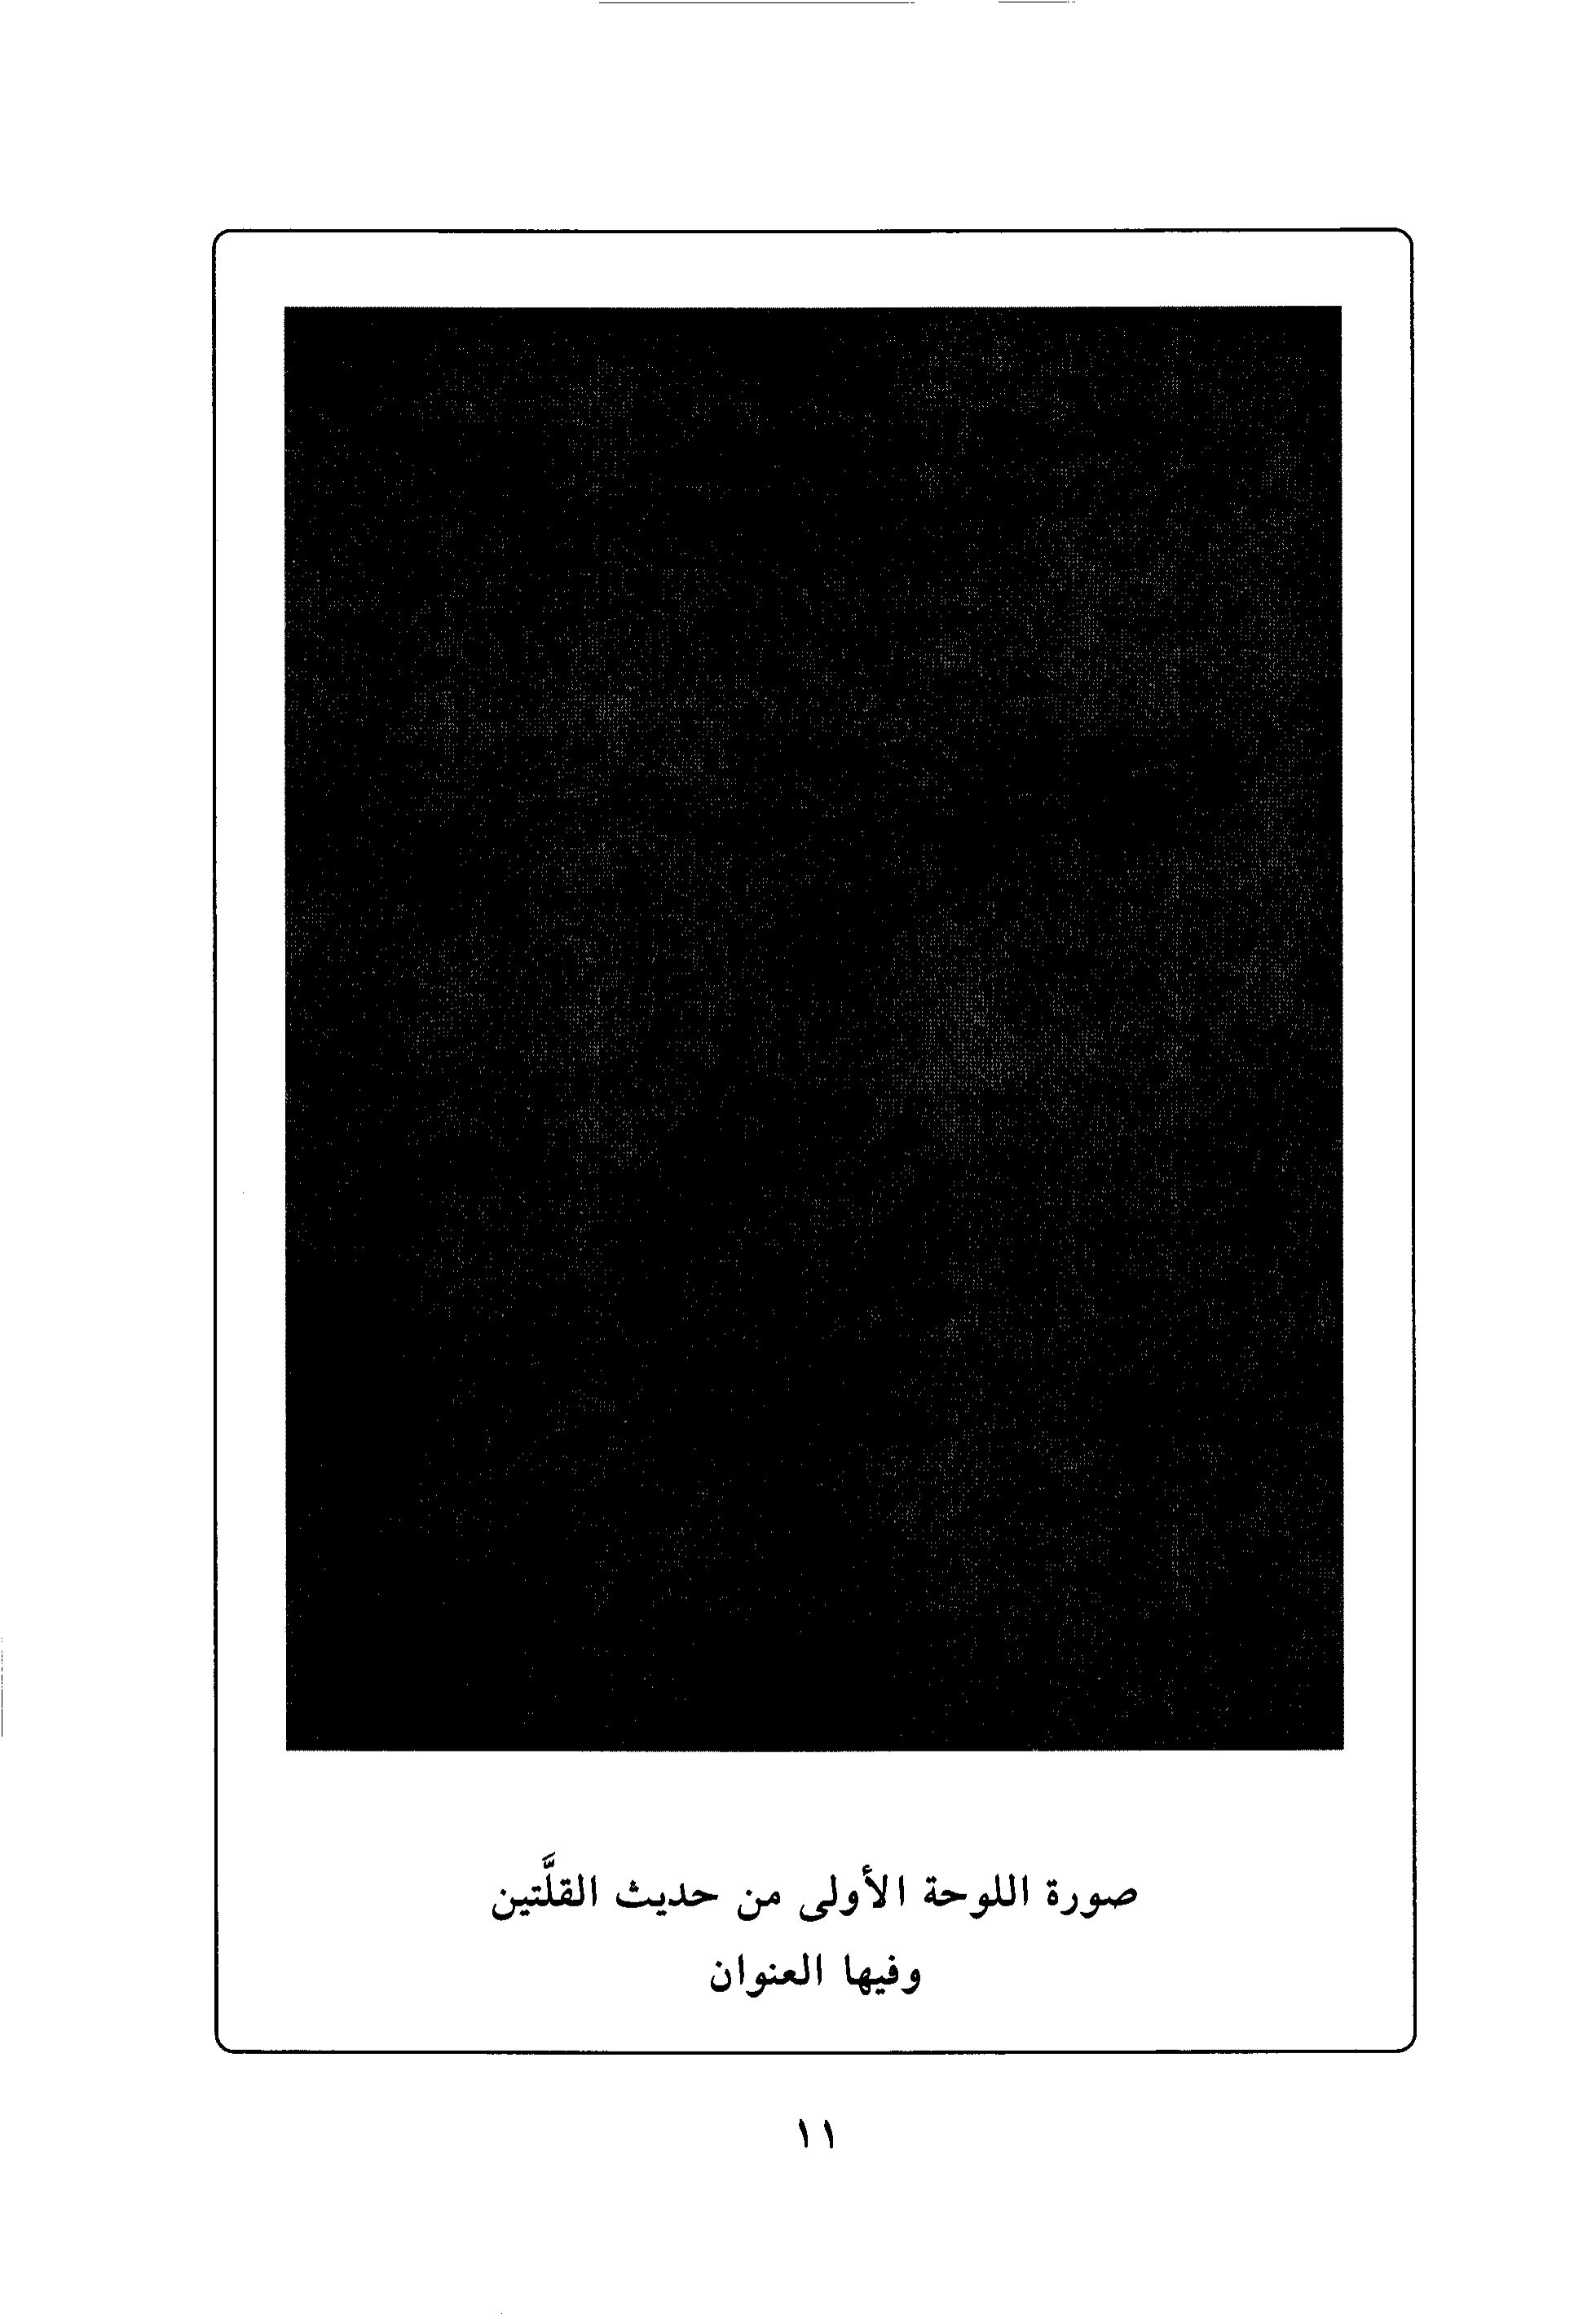 صورة اللوحة الأولى من حديث القلَّتين
وفيها العنوان
١١